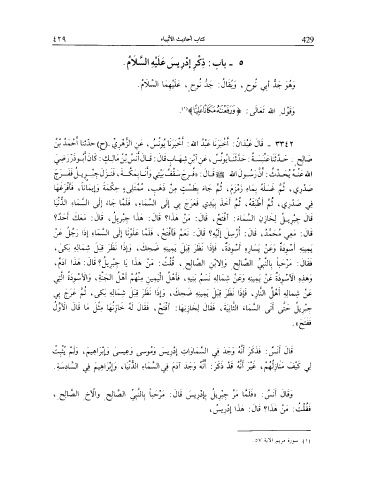 ٤٢٩ كتاب أحاديث الأنبياء 429
٥ - باب: ذِكْرِ إِدْرِيسَ عَلَيْهِ السَّلَامُ.
وَهُوَ جَدُّ أَبِي نُوحٍ، وَيُقَالُ: جَدُّ نُوحٍ، عَلَيْهِمَا السَّلَامُ.
وَقَوْلِ اللهِ تَعَالَى: ﴿وَرَفَعْنَاهُ مَكَانًا عَلِيًّا﴾(١)
٣٣٤٢ - قَالَ عَبْدَانُ: أَخْبَرَنَا عَبْدُ اللهِ: أَخْبَرَنَا يُونُسُ، عَنِ الزُّهْرِيِّ. (ح) حَدَّثَنَا أَحْمَدُ بْنُ
صَالِحٍ. حَدَّثَنَا عَنْبَسَةُ: حَدَّثَنَا يُونُسُ، عَنِ ابْنِ شِهَابٍ قَالَ: قَالَ أَنَسُ بْنُ مَالِكٍ: كَانَ أَبُو ذَرٍّ رَضِيَ
اللهُ عَنْهُ يُحَدِّثُ: أَنَّ رَسُولَ اللهِ ﷺ قَالَ: «فُرِجَ سَقْفُ بَيْتِي وَأَنَا بِمَكَّةَ، فَنَزَلَ جِبْرِيلُ فَفَرَجَ
صَدْرِي، ثُمَّ غَسَلَهُ بِمَاءِ زَمْزَمَ، ثُمَّ جَاءَ بِطَسْتٍ مِنْ ذَهَبٍ، مُمْتَلِئٍ حِكْمَةً وَإِيمَانًا، فَأَفْرَغَهَا
فِي صَدْرِي، ثُمَّ أَطْبَقَهُ، ثُمَّ أَخَذَ بِيَدِي فَعَرَجَ بِي إِلَى السَّمَاءِ، فَلَمَّا جَاءَ إِلَى السَّمَاءِ الدُّنْيَا
قَالَ جِبْرِيلُ لِخَازِنِ السَّمَاءِ: افْتَحْ، قَالَ: مَنْ هَذَا؟ قَالَ: هَذَا جِبْرِيلُ، قَالَ: مَعَكَ أَحَدٌ؟
قَالَ: مَعِي مُحَمَّدٌ، قَالَ: أُرْسِلَ إِلَيْهِ؟ قَالَ: نَعَمْ فَافْتَحْ، فَلَمَّا عَلَوْنَا إِلَى السَّمَاءِ إِذَا رَجُلٌ عَنْ
يَمِينِهِ أَسْوِدَةٌ وَعَنْ يَسَارِهِ أَسْوِدَةٌ، فَإِذَا نَظَرَ قِبَلَ يَمِينِهِ ضَحِكَ، وَإِذَا نَظَرَ قِبَلَ شِمَالِهِ بَكَى،
فَقَالَ: مَرْحَبًا بِالنَّبِيِّ الصَّالِحِ وَالِابْنِ الصَّالِحِ، قُلْتُ: مَنْ هَذَا يَا جِبْرِيلُ؟ قَالَ: هَذَا آدَمُ،
وَهَذِهِ الْأَسْوِدَةُ عَنْ يَمِينِهِ وَعَنْ شِمَالِهِ نَسَمُ بَنِيهِ، فَأَهْلُ الْيَمِينِ مِنْهُمْ أَهْلُ الْجَنَّةِ، وَالْأَسْوِدَةُ الَّتِي
عَنْ شِمَالِهِ أَهْلُ النَّارِ، فَإِذَا نَظَرَ قِبَلَ يَمِينِهِ ضَحِكَ، وَإِذَا نَظَرَ قِبَلَ شِمَالِهِ بَكَى، ثُمَّ عَرَجَ بِي
جِبْرِيلُ حَتَّى أَتَى السَّمَاءَ الثَّانِيَةَ، فَقَالَ لِخَازِنِهَا: افْتَحْ، فَقَالَ لَهُ خَازِنُهَا مِثْلَ مَا قَالَ الْأَوَّلُ
فَفَتَحَ».
قَالَ أَنَسٌ: فَذَكَرَ أَنَّهُ وَجَدَ فِي السَّمَاوَاتِ إِدْرِيسَ وَمُوسَى وَعِيسَى وَإِبْرَاهِيمَ، وَلَمْ يُثْبِتْ
لِي كَيْفَ مَنَازِلُهُمْ، غَيْرَ أَنَّهُ قَدْ ذَكَرَ: أَنَّهُ وَجَدَ آدَمَ فِي السَّمَاءِ الدُّنْيَا، وَإِبْرَاهِيمَ فِي السَّادِسَةِ.
وَقَالَ أَنَسٌ: «فَلَمَّا مَرَّ جِبْرِيلُ بِإِدْرِيسَ قَالَ: مَرْحَبًا بِالنَّبِيِّ الصَّالِحِ وَالْأَخِ الصَّالِحِ ،
فَقُلْتُ: مَنْ هَذَا؟ قَالَ: هَذَا إِدْرِيسُ،
(١) سورة مريم الآية ٥٧